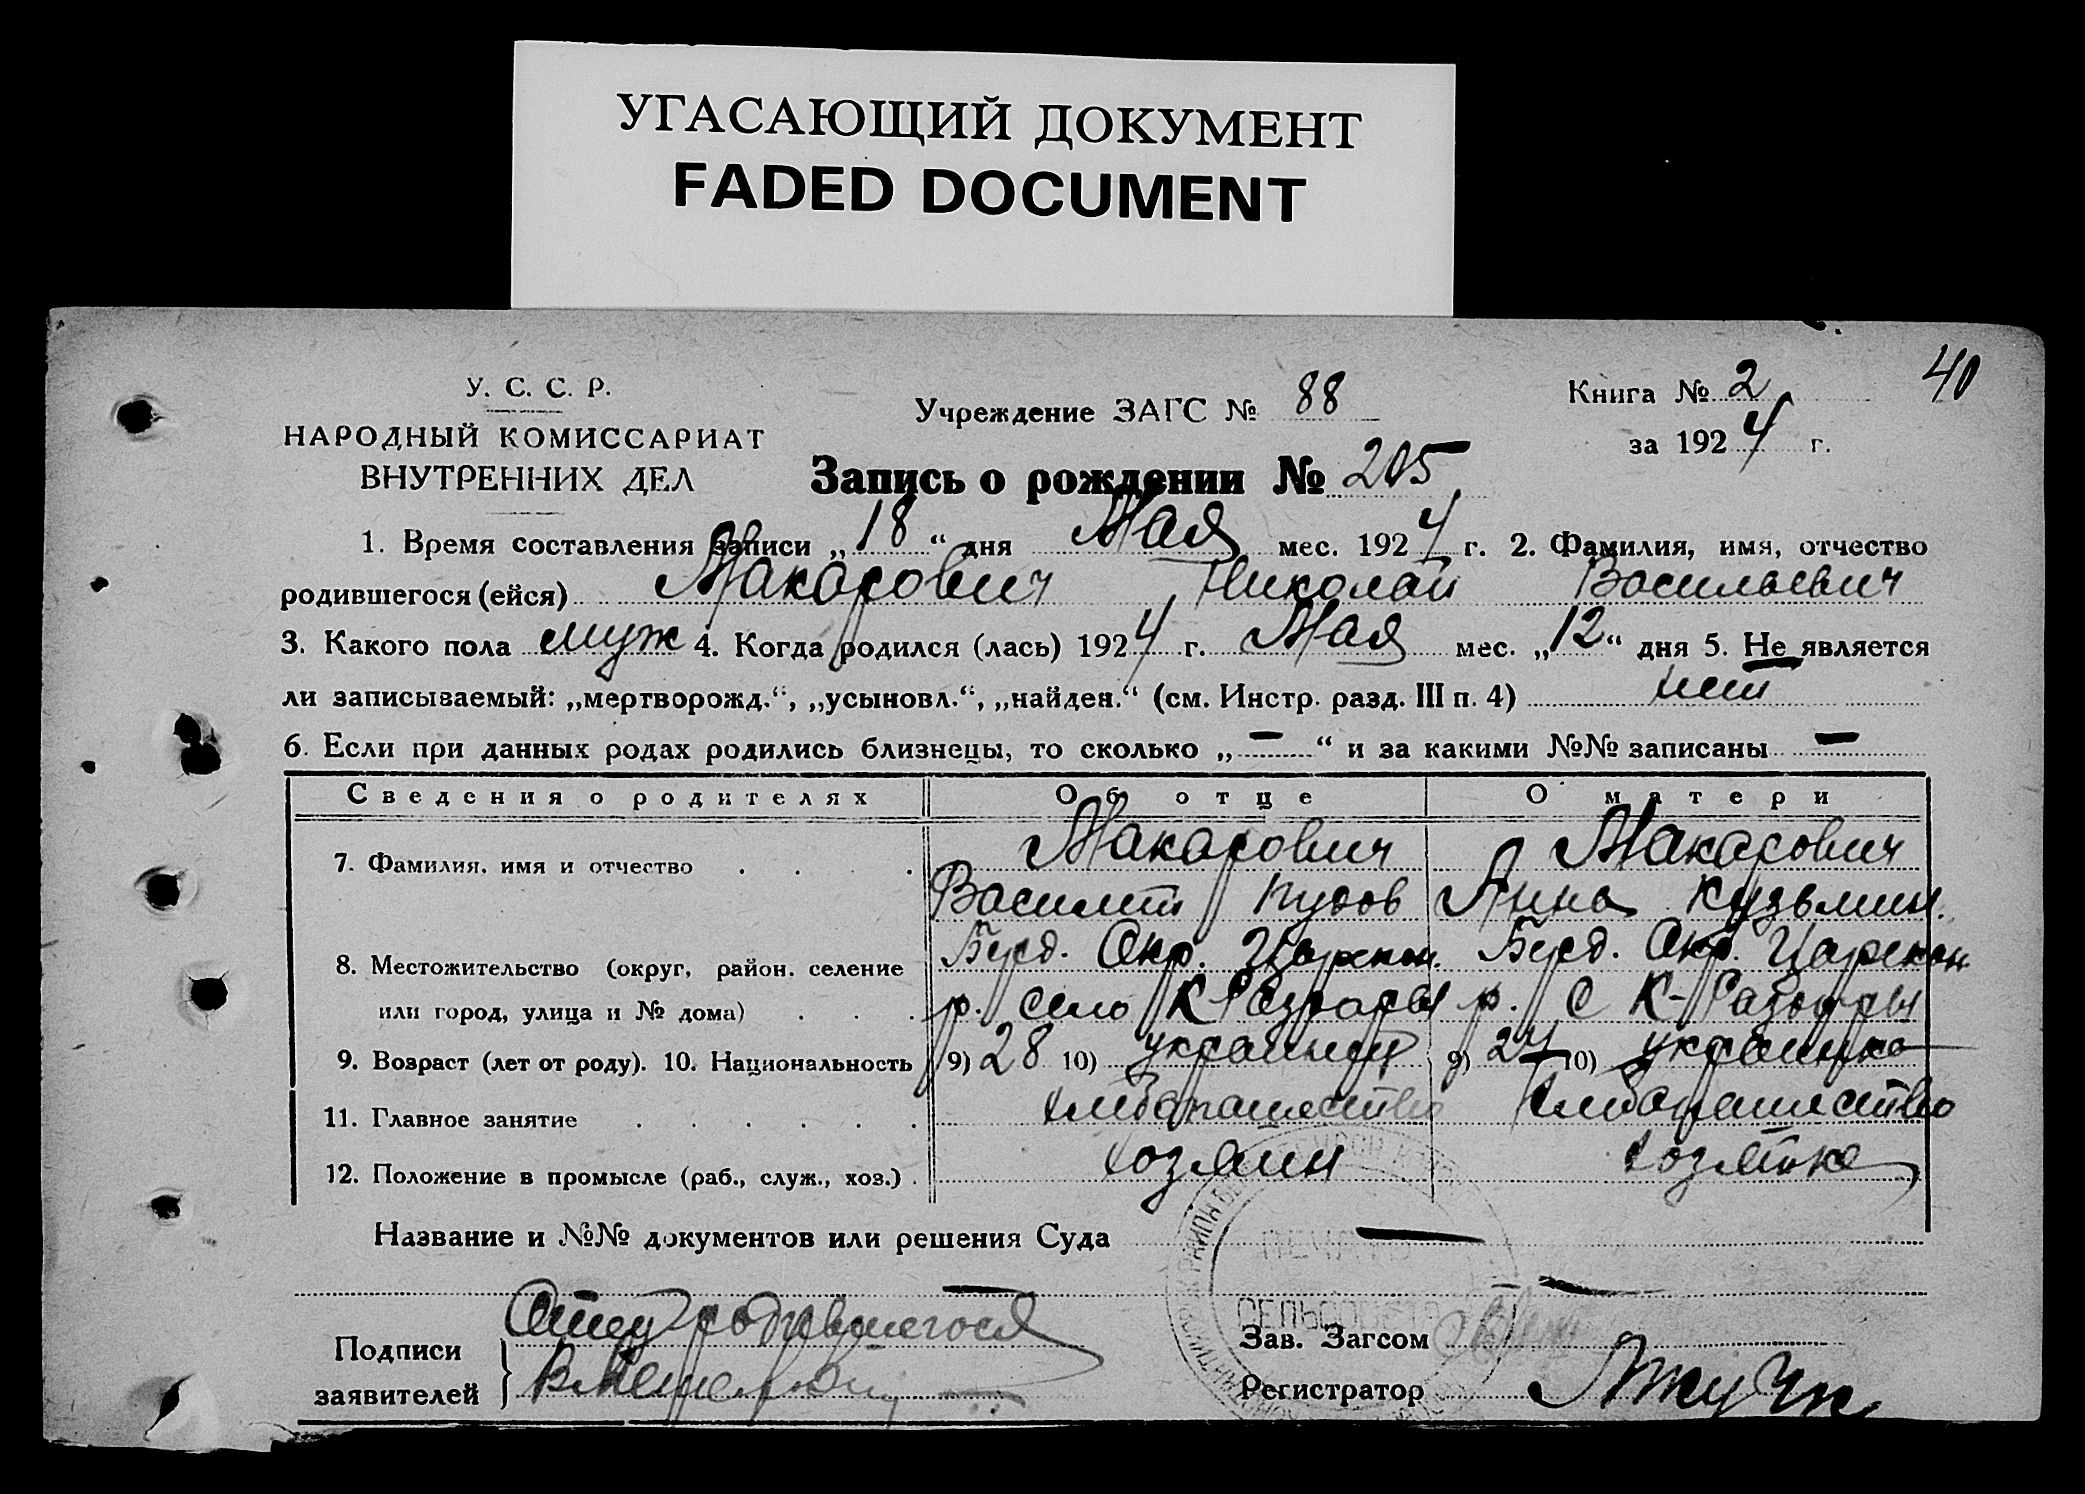 УГАСАЮЩИЙ ДОКУМЕНТ
FADED DOCUMENT
40
У. С. С. Р.
НАРОДНЫЙ КОМИССАРИАТ
ВНУТРЕННИХ ДЕЛ
Учреждение ЗАГС № 88
Книга № 2
за 1924 г.
Запись о рождении № 205
1. Время составления записи „18“ дня Мая мес. 1924 г. 2. Фамилия, имя, отчество
родившегося (ейся) Макарович Николай Васильевич
3. Какого пола муж 4. Когда родился (лась) 1924 г. Мая мес. „12“ дня 5. Не является
ли записываемый: „мертворожд.“, „усыновл.“, „найден.“ (см. Инстр. разд. III п. 4) нет
6. Если при данных родах родились близнецы, то сколько „—“ и за какими №№ записаны —
Сведения о родителях Об отце О матери
7. Фамилия, имя и отчество Макарович Макарович
Василий Анна Кузьмин.
8. Местожительство (округ, район, селение Берд. Окр. Царекон. Берд. Окр. Царекон
или город, улица и № дома) р. село К-Разоры р. с К-Разоры
9. Возраст (лет от роду). 10. Национальность 9) 28 10) украинец 9) 24 10) украинка
11. Главное занятие хлебопашество хлебопашество
12. Положение в промысле (раб., служ., хоз.) хозяин хозяйка
Название и №№ документов или решения Суда —
— —
Подписи
заявителей
Отец родившегося
ПЕЧАТЬ
СЕЛЬСОВЕТА
Зав. Загсом
Регистратор